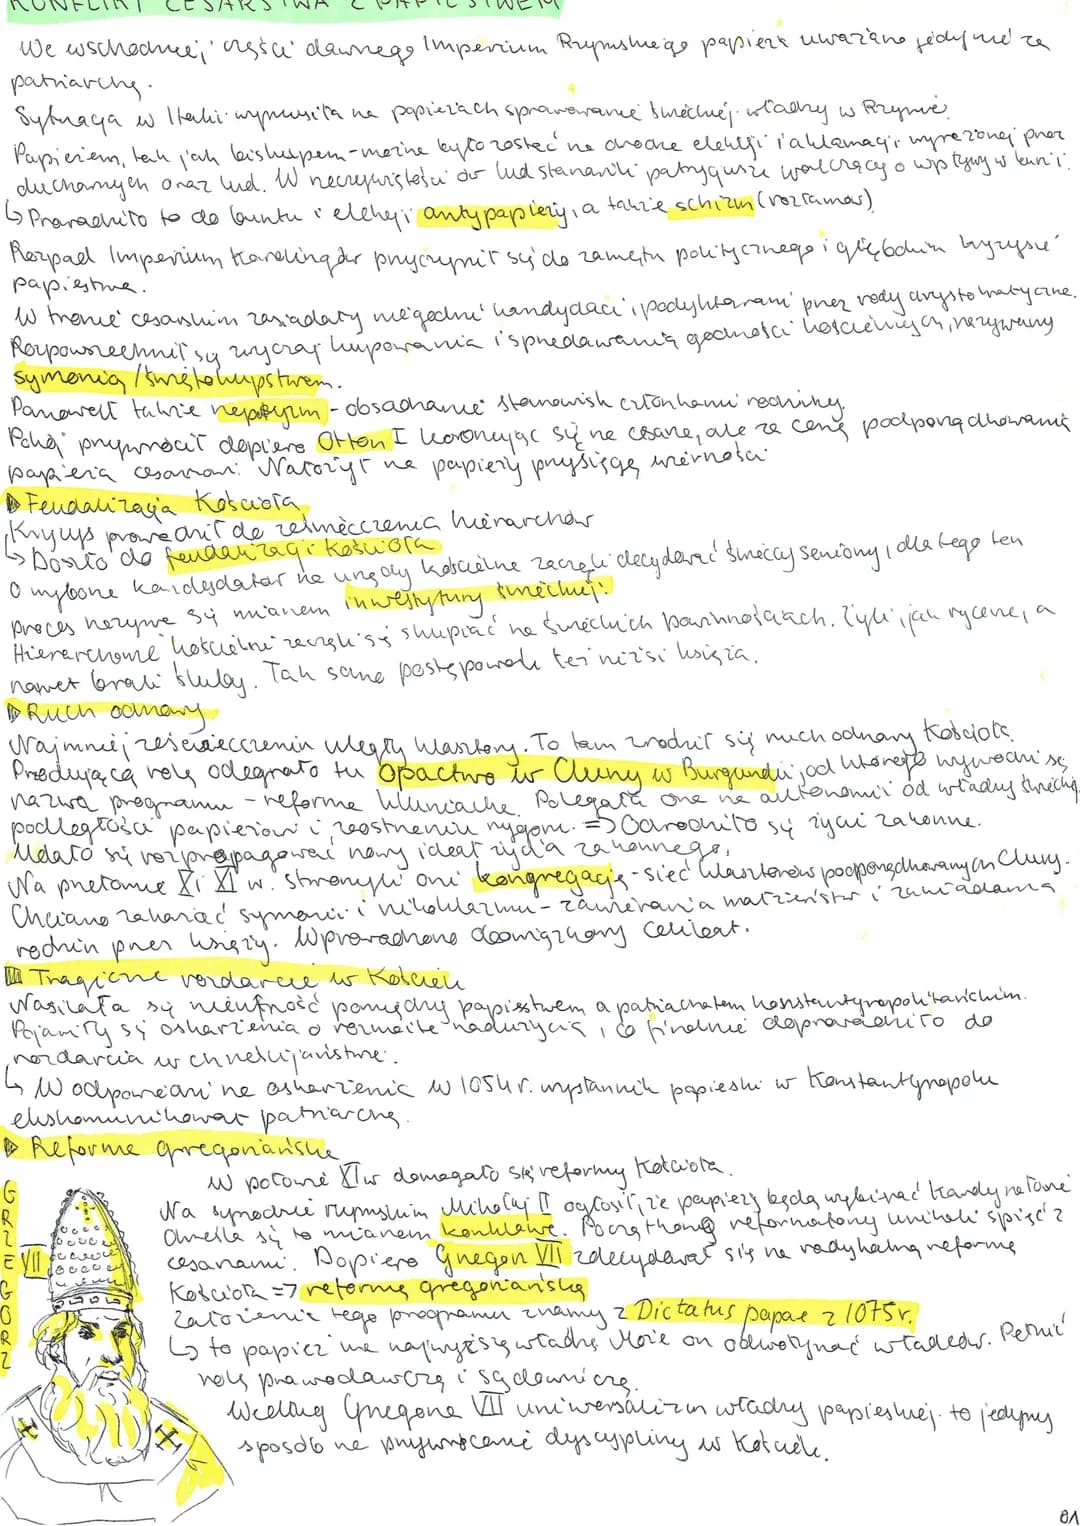 KONFLIKT CESARSTWA Z PAPIESTWEM
We wschodniej części dawnego Imperium Rzymskiego papieża uważano jedynie za
patriarchę.
Sytuacja w Italii wymusiła na papieżach sprawowanie świeckiej władzy w Rzymie.
Papieżem, tak jak biskupem - można było zostać na drodze elekcji i aklamacji wyrażonej przez
duchownych oraz lud. W rzeczywistości ów lud stanowili patrycjusze walczący o wpływy w kurii.
↳ Prowadziło to do buntu i elekcji antypapieży, a także schizm (rozłamów)
Rozpad Imperium Karolingów przyczynił się do zamętu politycznego i głębokim kryzysie
papiestwa.
W tronie cesarskim zasiadały niegodni kandydaci, podyktowani przez rody arystokratyczne.
Rozpowszechnił się zwyczaj kupowania i sprzedawania godności kościelnych, nazywany
symonią / świętokupstwem.
Panował także nepotyzm - obsadzanie stanowisk członkami rodziny.
Pokój przywrócił dopiero Otton I koronując się na cesarza, ale za cenę podporządkowania
papieża cesarzowi. Nałożył na papieży przysięgę wierności
▷ Feudalizacja Kościoła
Kryzys prowadził do zeświecczenia hierarchów
↳ Doszło do feudalizacji Kościoła
O wyborze kandydatów na urzędy kościelne zaczęli decydować świeccy seniorzy, dlatego ten
proces nazywa się mianem inwestytury świeckiej.
Hierarchowie kościelni zaczęli się skupiać na świeckich powinnościach. Żyli, jak rycerze, a
nawet brali śluby. Tak samo postępowali też niżsi księża.
▷ Ruch odnowy
Najmniej zeświecczeniu uległy klasztory. To tam zrodził się ruch odnowy Kościoła.
Przodującą rolę odegrało tu Opactwo w Cluny w Burgundii, od którego wywodzi się
nazwa programu - reforma kluniacka. Polegała ona na autonomii od władzy świeckiej,
podległości papieżowi i zaostrzeniu rygoru. => Odrodziło się życie zakonne.
Udało się rozpropagować nowy ideał życia zakonnego,
Na przełomie X i XI w. stworzyli oni kongregację - sieć klasztorów podporządkowanych Cluny.
Chciano zakazać symonii i nikolaizmu - zawierania małżeństw i zakładania
rodzin przez księży. Wprowadzono obowiązkowy celibat.
▷ Tragiczne rozdarcie w Kościele
Nasilała się nieufność pomiędzy papiestwem a patriarchatem konstantynopolitańskim.
Pojawiły się oskarżenia o rozmaite nadużycia, co finalnie doprowadziło do
rozdarcia w chrześcijaństwie.
↳ W odpowiedzi na oskarżenia w 1054 r. wysłannik papieski w Konstantynopolu
ekskomunikował patriarchę.
▷ Reforma gregoriańska
W połowie XI w domagało się reformy Kościoła.
Na synodzie rzymskim Mikołaj II ogłosił, że papieży będą wybierać kardynałowie
Określa się to mianem konklawe. Początkowo reformatorzy unikali spięć z
cesarzami. Dopiero Grzegorz VII zdecydował się na radykalną reformę
Kościoła => reformę gregoriańską
Założenie tego programu znamy z Dictatus papae z 1075 r.
↳ to papież ma najwyższą władzę. Może on odwoływać władców. Pełnić
rolę prawodawczą i sądowniczą.
Według Grzegorza VII uniwersalizm władzy papieskiej to jedyny
sposób na przywrócenie dyscypliny w Kościele.
GRZEGORZ
VII
01